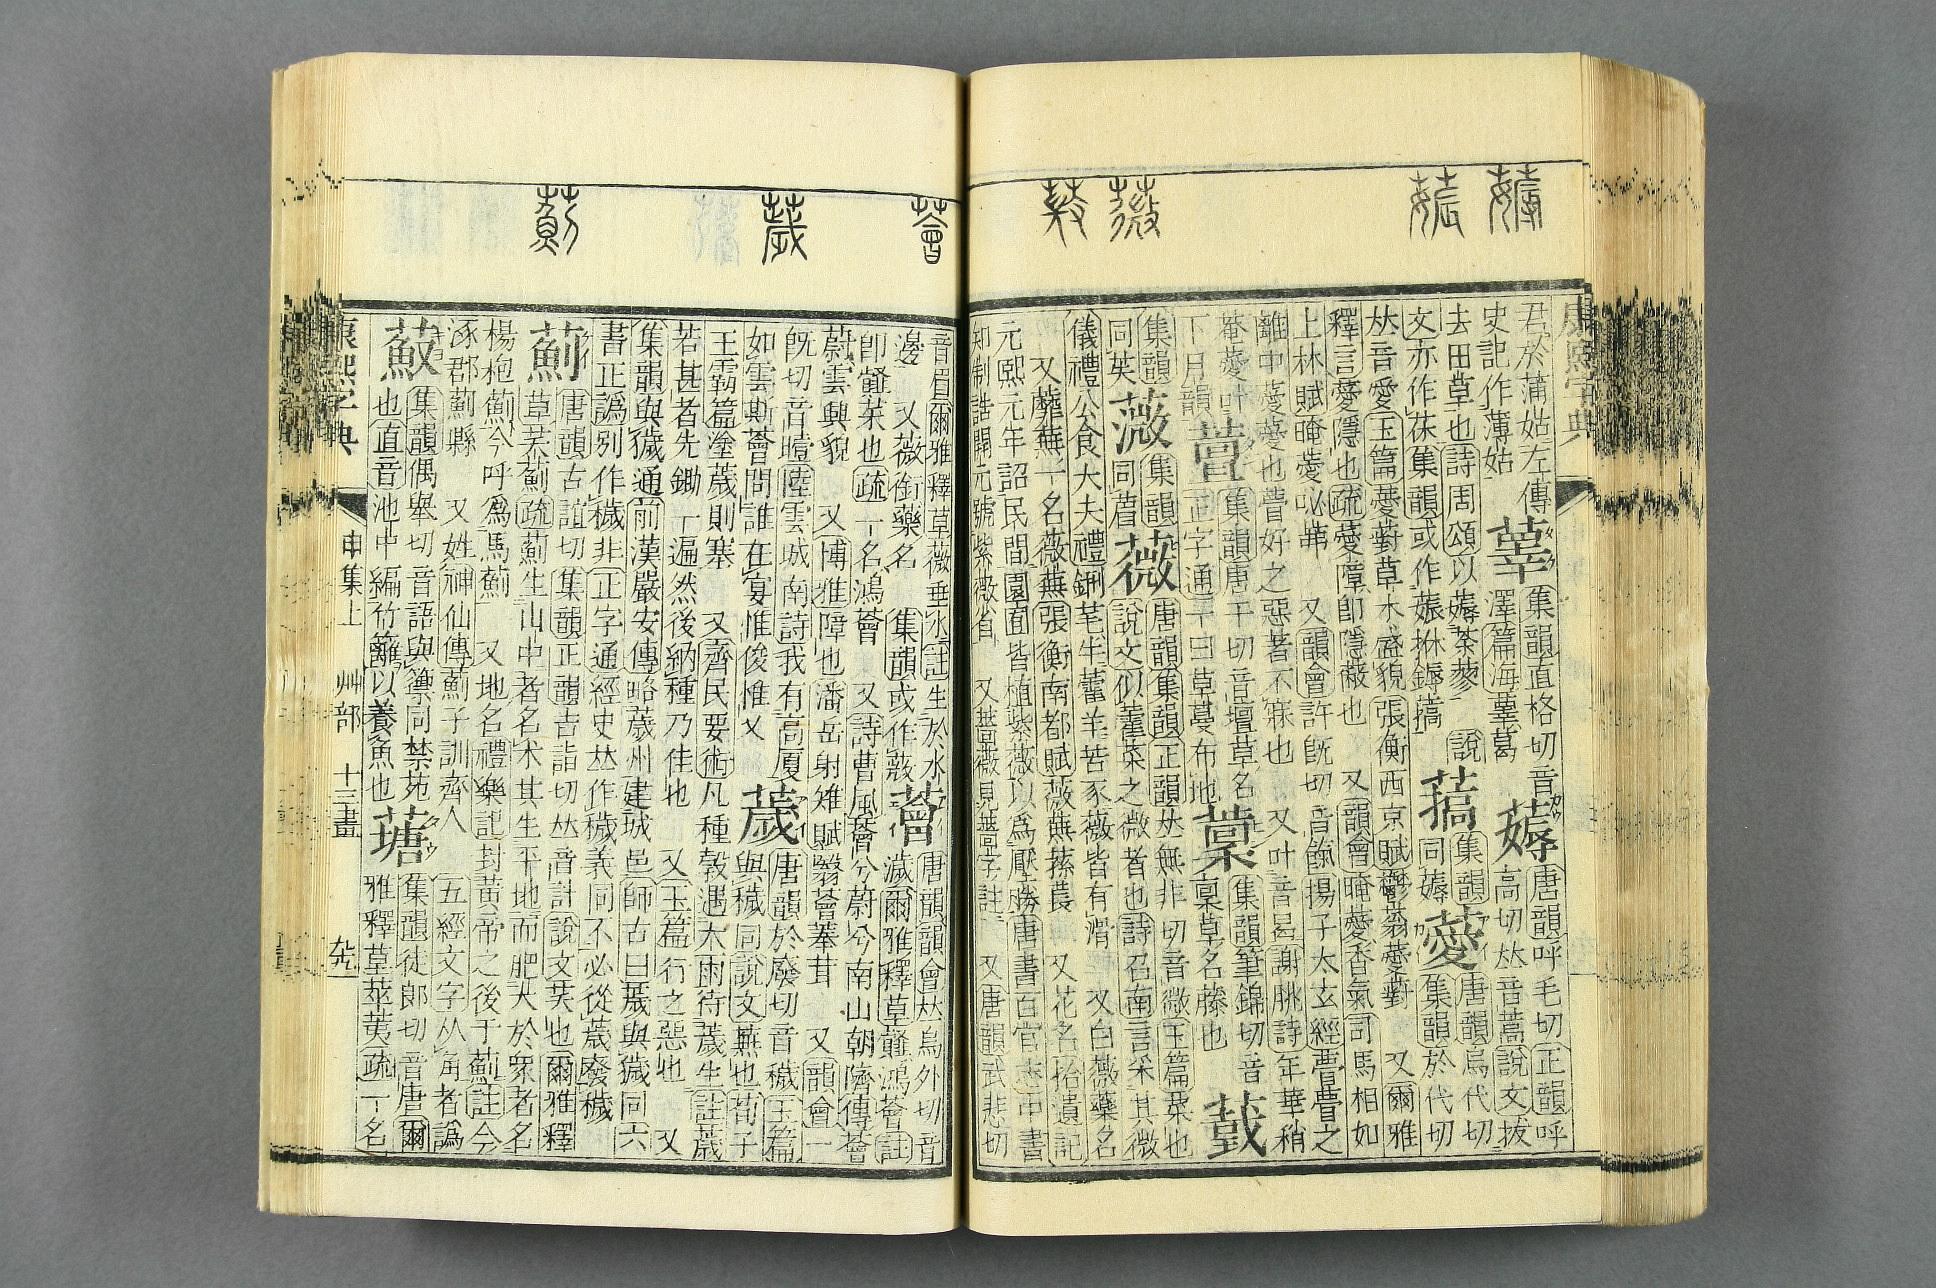 君於蒲姑左傳
史記作薄姑
集韻直格切音
澤篇海葛
薅
唐韻呼毛切正韻呼
高切𠀤音蒿說文拔
去田草也詩周頌以薅荼蓼 說
文亦作茠集韻或作
集韻
同薅
薆
唐韻烏代切
集韻於代切
𠀤音愛玉篇薆薱草木盛貌 張衡西京賦鬱蓊薆薱 又爾雅
釋言薆隱也疏薆障卽隱薇也 又韻會晻薆香氣司馬相如
上林賦晻薆咇茀 又韻會許旣切音餼揚子太玄經瞢瞢之
離中薆薆也瞢好之惡著不寐也 又叶音曷謝朓詩年華稍
菴薆叶
下月韻
集韻唐干切音壇草名
正字通草曰草蔓布地
集韻筆錦切音
稟草名藤也
集韻
同英
薇
集韻
同蘪
薇
唐韻集韻正韻𠀤無非切音微玉篇菜也
說文似藿菜之微者也詩召南言采其微
儀禮公食大夫禮鉶芼牛藿羊苦豕薇皆有滑 又白薇藥名
又蘼蕪一名薇蕪張衡南都賦薇蕪蓀萇 又花名拾遺記
元熙元年詔民間園囿皆植紫薇以爲厭勝唐書百官志中書
知制誥開元號紫微省 又薔薇見薔字註 又唐韻武悲切
音眉爾雅釋草薇垂水註生於水
邊 又薇銜藥名 集韻或作
薈
唐韻韻會𠀤烏外切音
濊爾雅釋草䕲鴻薈註
卽䕲菜也疏一名鴻薈 又詩曹風薈兮蔚兮南山朝隮傳薈
蔚雲興貌 又博雅障也潘岳射雉賦翳薈菶茸 又韻會一
旣切音曀陸雲城南詩我有高廈
如雲斯薈問誰在宴惟俊惟乂
薉
唐韻於廢切音穢玉篇
與穢同說文蕪也荀子
王霸篇塗薉則塞 又齊民要術凡種穀遇大雨待薉生註薉
若甚者先鋤一遍然後納種乃佳也 又玉篇行之惡也 又
集韻與穢通前漢嚴安傳略薉州建城邑師古曰薉與穢同六
書正譌別作穢非正字通經史𠀤作穢義同不必從薉廢穢
薊
唐韻古詣切集韻正韻吉詣切𠀤音計說文芺也爾雅釋
草朮薊疏薊生山中者名朮其生平地而肥大於衆者名
楊枹薊今呼爲馬薊 又地名禮樂記封黃帝之後于薊註今
涿郡薊縣 又姓神仙傳薊子訓齊人 五經文字从角者譌
䔩
集韻偶舉切音語與籞同禁苑
也直音池中編竹籬以養魚也
蓎
集韻徒郎切音唐爾
雅釋草萃疏一名
康熙字典
申集上 艸部 十三畫